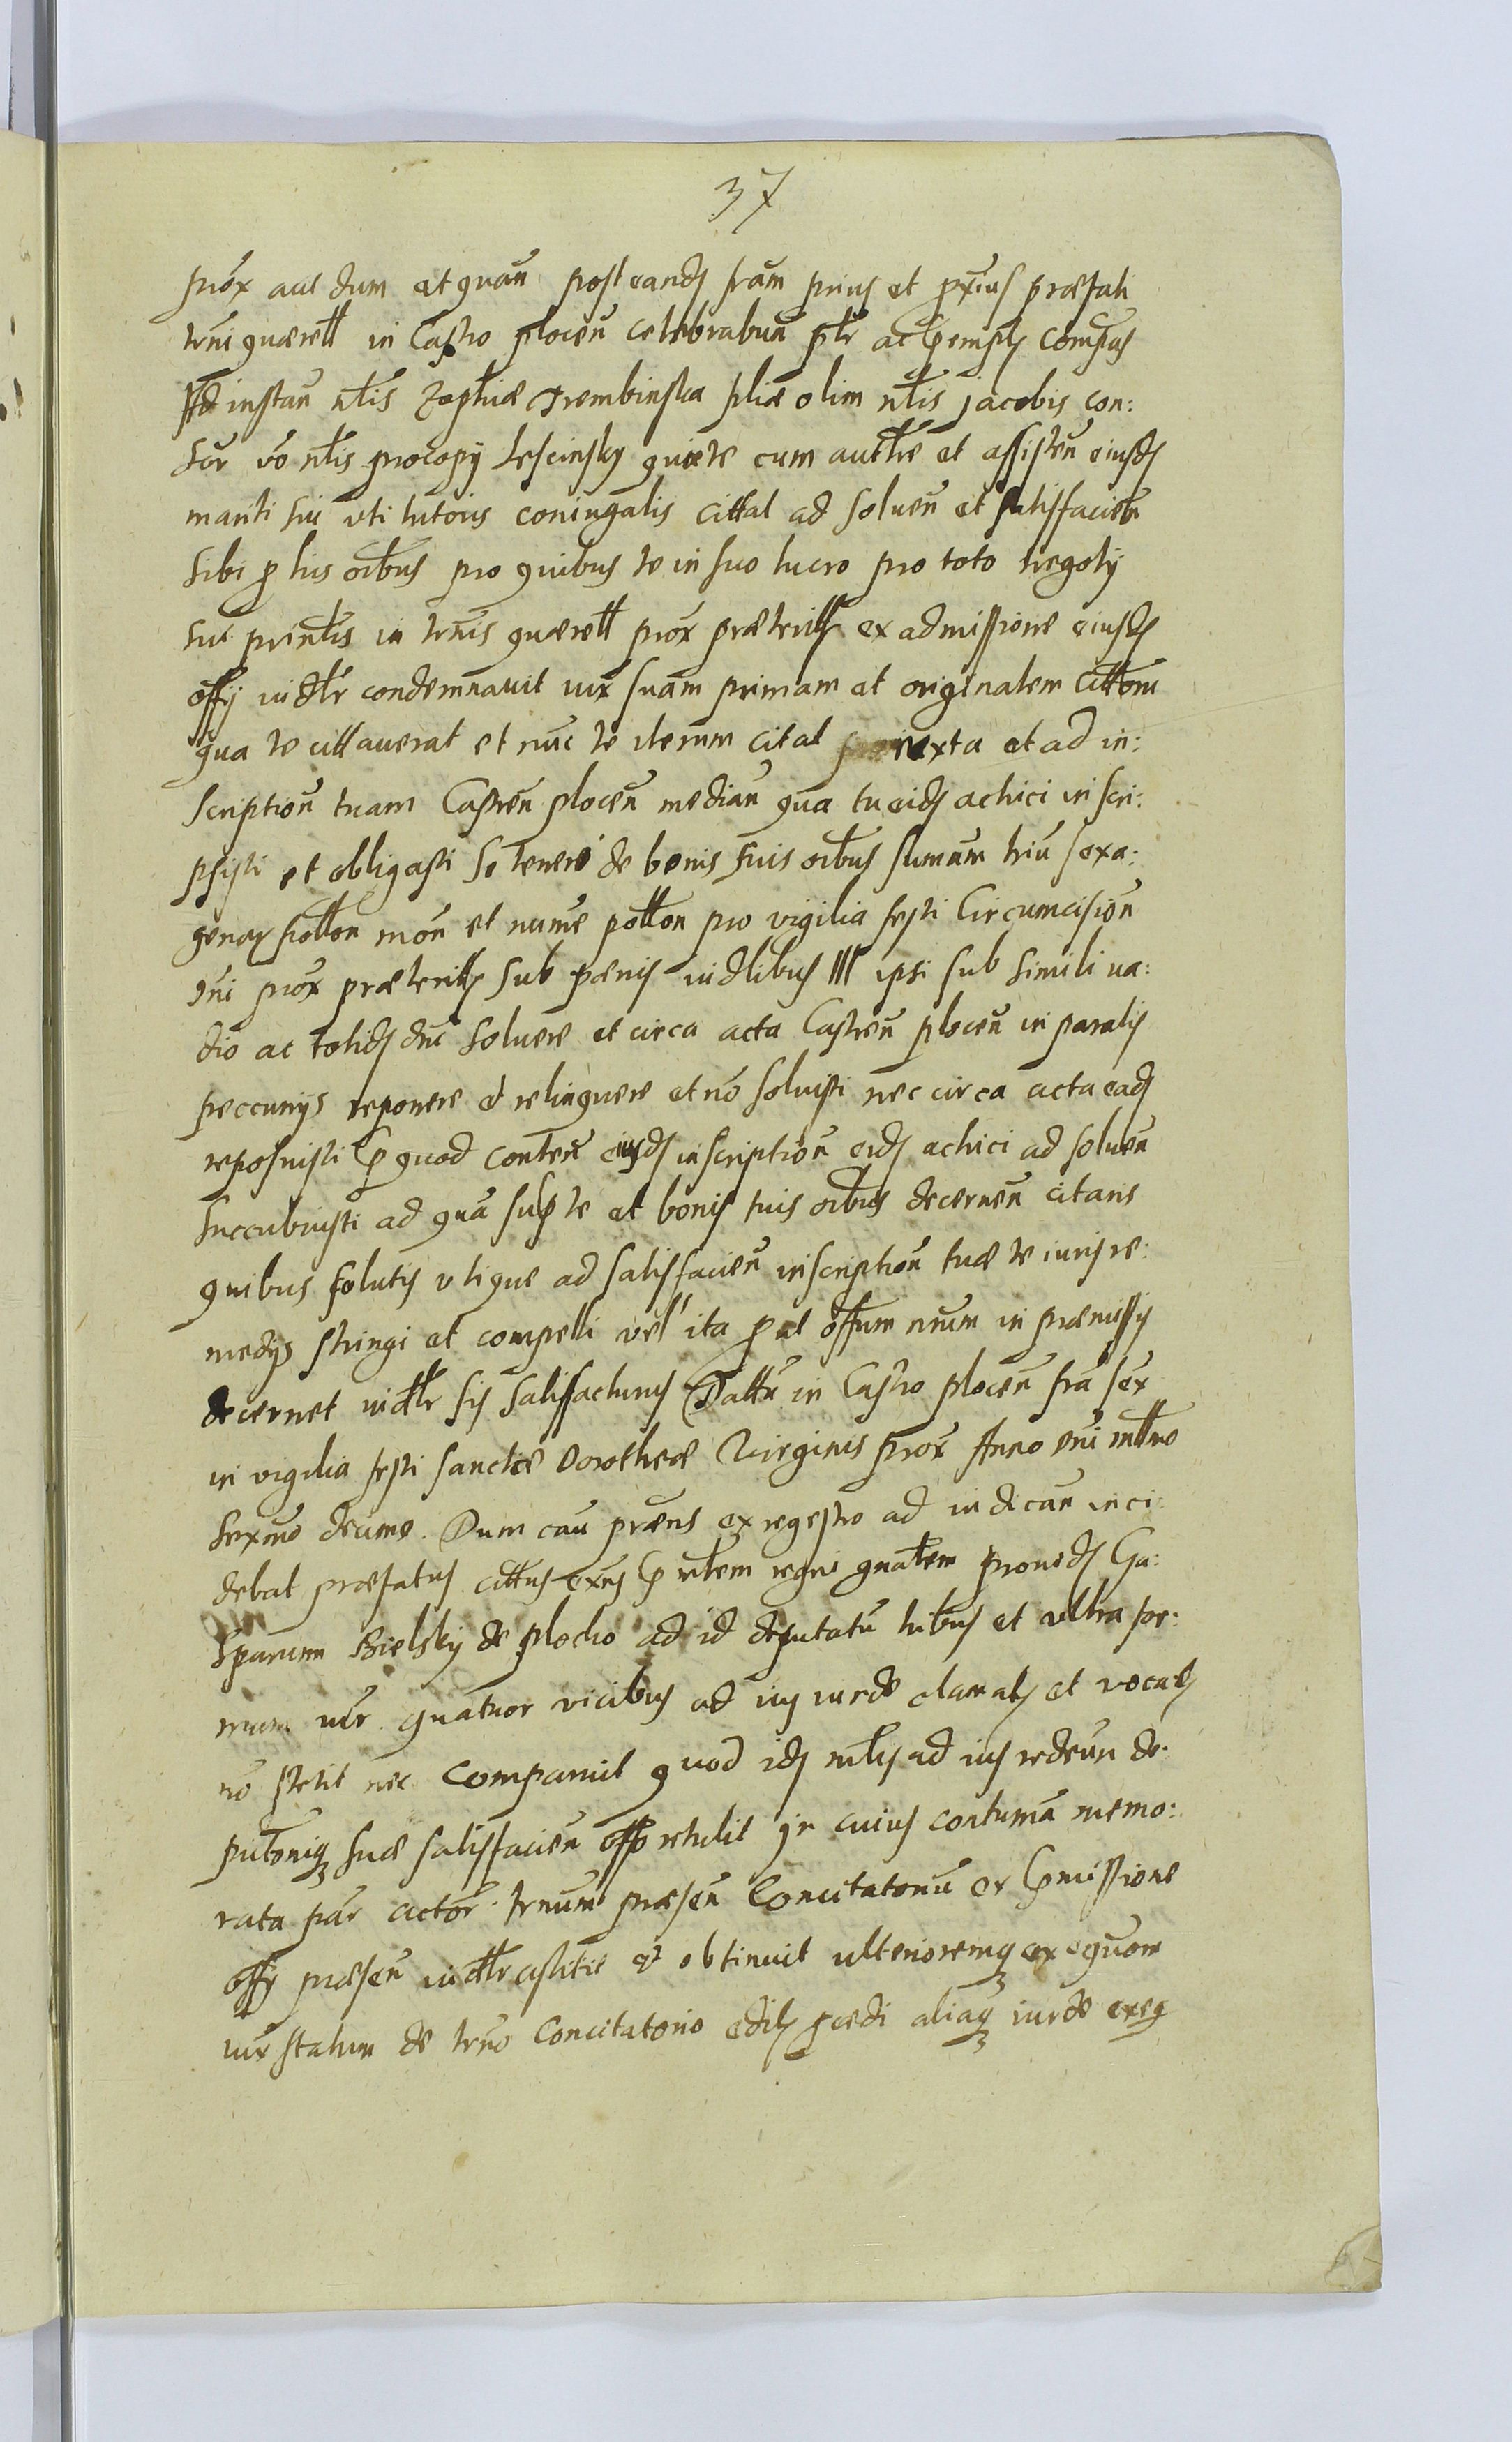 37
prox aut dum et quan post eandẽ fram prius et pxius præfati
trni quærell in Castro plocen celebrabun ptr ac pempt compas
Ad instan nlis Zophiæ Trembinska filiæ olim nlis jacobis con:
ser vo nlis procopy Lescinsky quæ te cum authe et assisten eiusd
mariti sui uti tutoris coniugalis cittat ad soluen et satisfacien
sibi p his oibus pro quibus te in suo lucro pro toto negoty
sui prinlis in trnis quærell prox præterit ex admissione eiusd
offy iudlr condemnauit iux suam primam et originalem cittom
qua te cittauerat et nuc te iterum citat iuxta et ad in:
scription tuam Castren plocen median qua tu eid actrici inscri:
psisti et obligasti se tenere de bonis suis oibus sumam triu sexa:
genar pollon mon et nume pollon pro vigilia festi Circumcision
Dni prox præterit sub pænis iudlibus III ipsi sub simili va:
dio ac totid dnc soluere et circa acta Castren plocen in paratis
peccunys reponere et relinquere et no soluisti nec circa acta ead
reposuisti p quod conten eiusd inscription eid actrici ad soluen
succubuisti ad qua sup te et bonis tuis oibus decernen citaris
quibus solutis utique ad satisfacien inscription tuæ te iuris re:
medys stringi et compelli vel ita p ut offum nrum in præmissis
decernet iudlr sis satisfacturus Dattu in Castro plocen fra sex
in vigilia festi sanctæ Dorotheæ Virginis prox Anno Dni mllmo
sexmo decimo. Dum cau præns ex regestro ad iudican inci:
debat præfatus cittus exns p mlem regni gnalem prouid Ga:
sparum Bielsky de plocko ad id deputatu tribus et ultra ter:
num ulr quatuor vicibus ad ius iurde clamat et vocat
no stetit nec comparuit quod id mlis ad ius redeun de:
putoniq suæ satisfacien offo retulit In cuius contuma memo:
rata par actor trnum præsen Concitatoriu ex pmissione
offy præsen iudlr astitit et obtinuit ulterioremq exequom
iur statum de trno Concitatorio edit pcedi aliaq iurde exeq